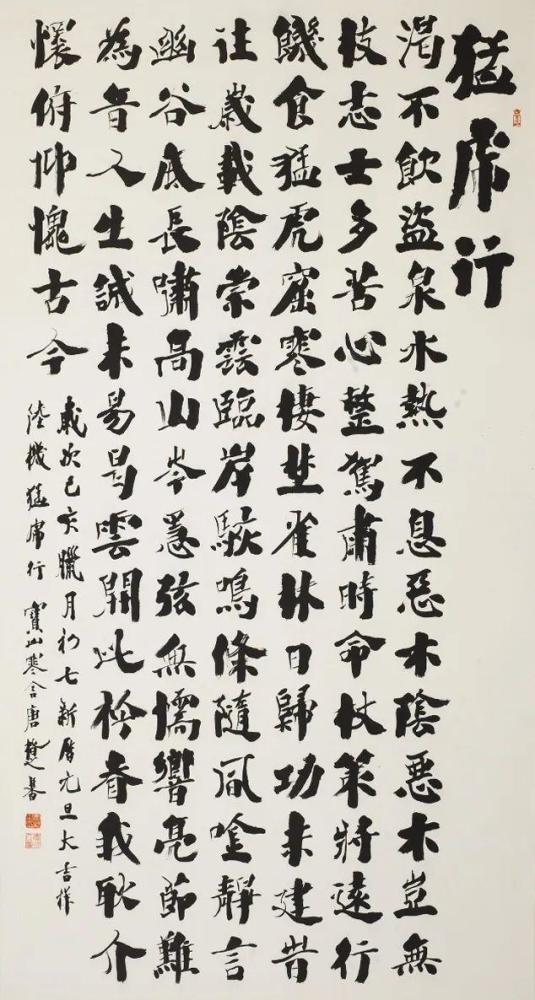 猛虎行
渴不飲盜泉水熱不息惡木陰惡木豈無
枝志士多苦心整駕肅時命杖策將遠行
饑食猛虎窟寒棲埜雀林日歸功未建旹
往歲載陰崇雲臨岸駭鳴條隨風吟靜言
幽谷底長嘯高山岑急弦無懦響亮節難
為音人生誠未易曷雲開此衿眷我耿介
懷俯仰愧古今
歲次己亥臘月初七新曆元旦大吉祥
陸機猛虎行 寶山寒舍唐